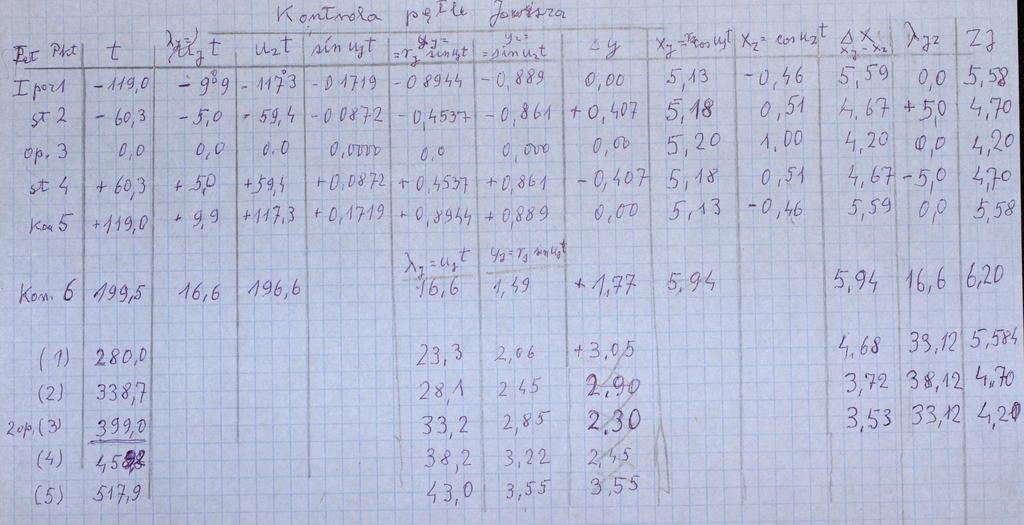 Kontrola pętli Jowisza
Pkt t λj= uj t uz t sin uj t yj= =rj sin uj t yz= =sin uz t Δy xj=rj cos uj t xz=cos uz t Δx xj-xz λjz zj
I pocz 1 -119,0 -9,9 -117,3 -0,1719 -0,8944 -0,889 0,00 5,13 -0,46 5,59 0,0 5,58
st 2 -60,3 -5,0 -59,4 -0,0872 -0,4537 -0,861 +0,407 5,18 0,51 4,67 +5,0 4,70
op. 3 0,0 0,0 0,0 0,0000 0,0 0,000 0,00 5,20 1,00 4,20 0,0 4,20
st 4 +60,3 +5,0 +59,4 +0,0872 +0,4537 +0,861 -0,407 5,18 0,51 4,67 -5,0 4,70
Kon 5 +119,0 +9,9 +117,3 +0,1719 +0,8944 +0,889 0,00 5,13 -0,46 5,59 0,0 5,58
λj=uj t yj=rj sin uj t
Kon. 6 199,5 16,6 196,6 16,6 1,49 +1,77 5,94 5,94 16,6 6,20
(1) 280,0 23,3 2,06 +3,05 4,68 33,12 5,584
(2) 338,7 28,1 2,45 2,90 3,72 38,12 4,70
2op. (3) 399,0 33,2 2,85 2,30 3,53 33,12 4,20
(4) 38,2 3,22 2,45
(5) 517,9 43,0 3,55 3,55